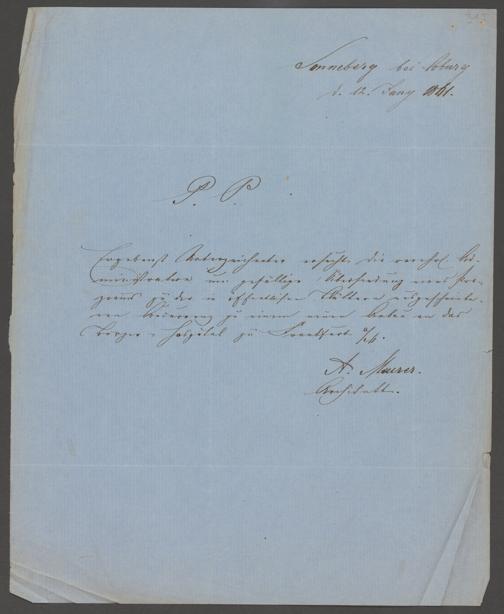 Sonneberg bei Coburg
d. 12. Jany 1861.
P. P.
Ergebenst Unterzeichneter ersucht die verehrl. Ad-
ministration um gefällige Übersendung eines Pro-
gramms zu der in öffentlichen Blättern ausgeschriebe-
nen Concurrenz zu einem neuen Baue an das
Bürger-Hospital zu Frankfurt a/M.
A. Maurer.
Architekt.